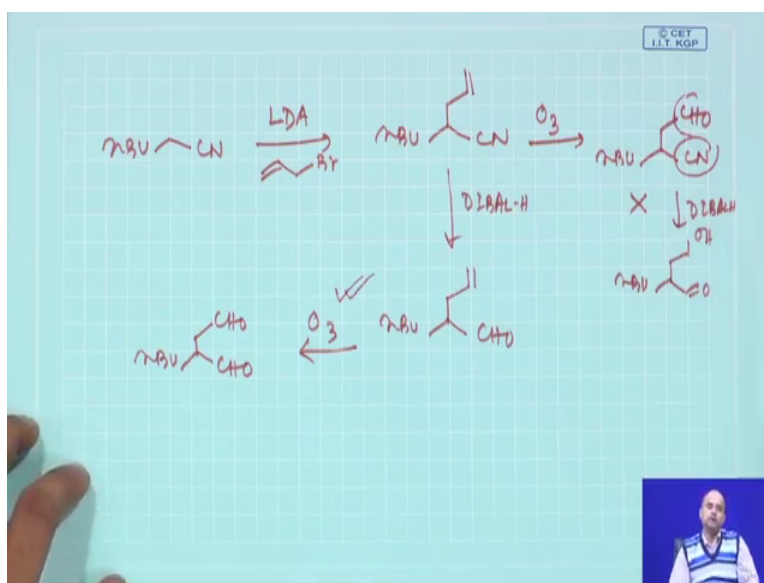 © CET
I.I.T. KGP
LDA
nBu CN
Br
nBu CN
O3
CHO
nBu CN
DIBAL-H
X
DIBALH
OH
nBu O
nBu CHO
O3
CHO
nBu CHO